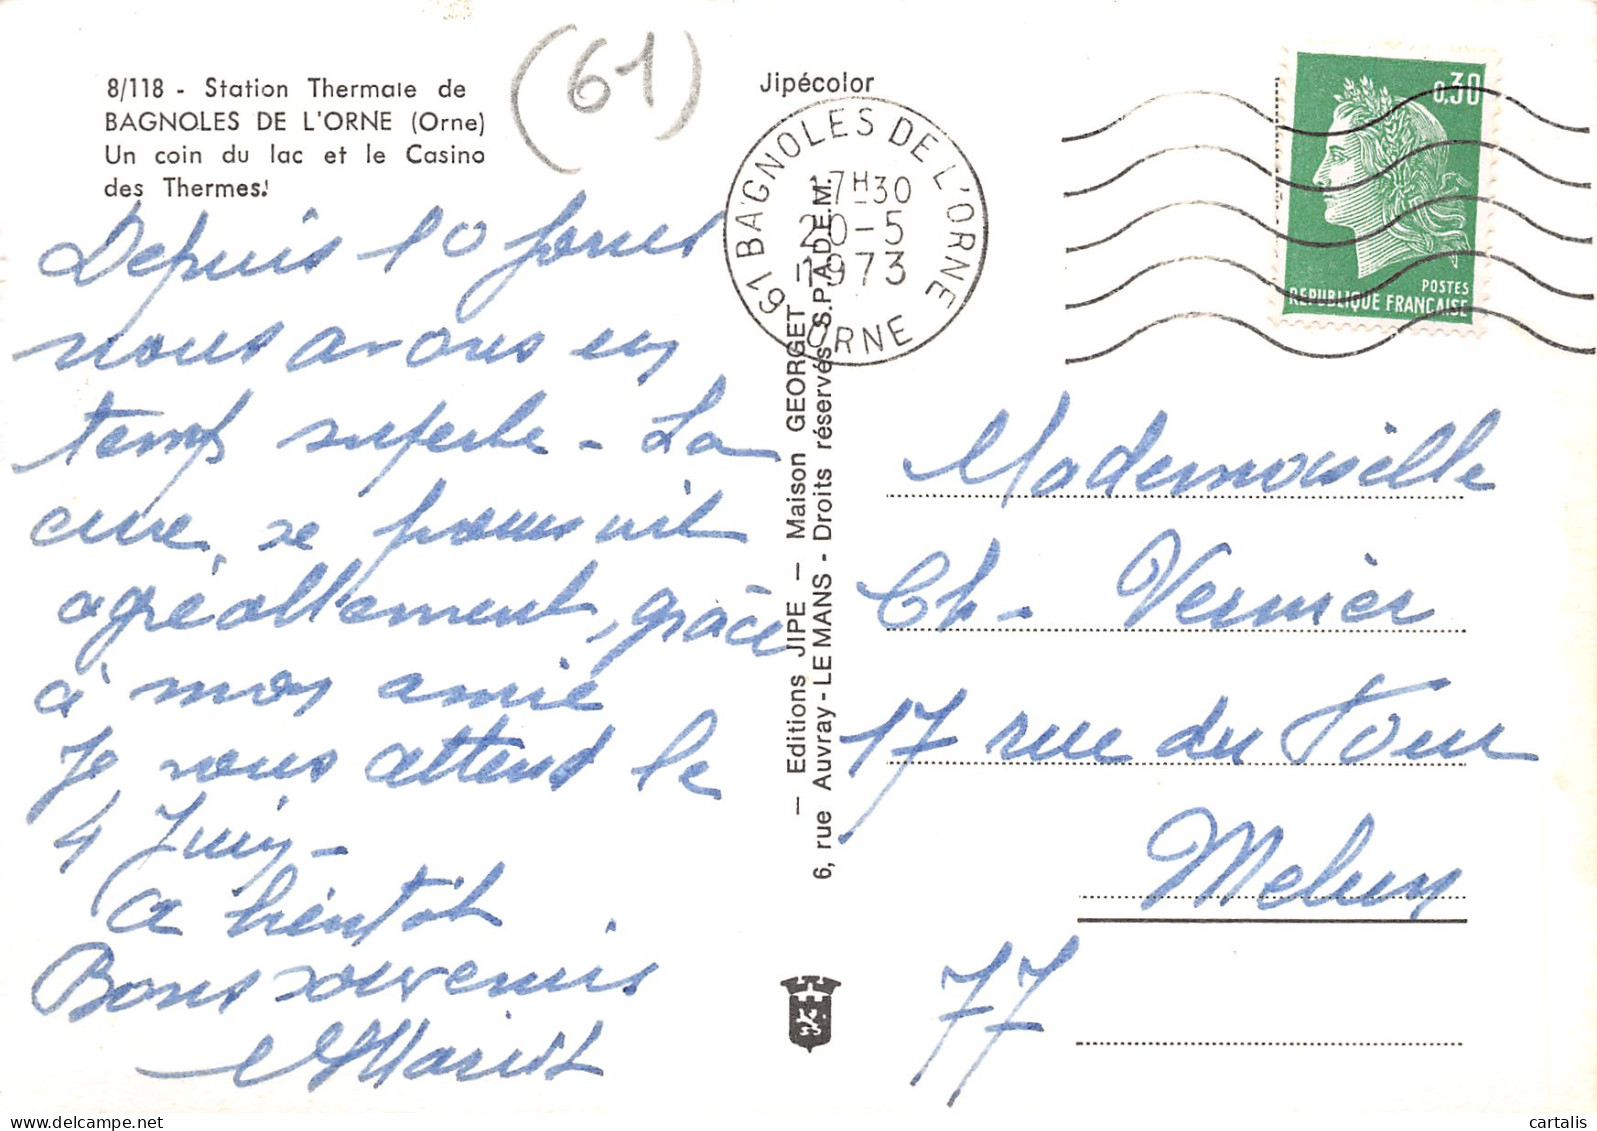 8/118 - Station Thermale de
BAGNOLES DE L'ORNE (Orne)
Un coin du lac et le Casino
des Thermes.
(61)
Jipécolor
61 BAGNOLES DE L'ORNE
17H30
20-5
1973
ORNE
0,30
POSTES
REPUBLIQUE FRANÇAISE
Depuis 10 jours
nous avons eu
temps superbe - La
cure, se poursuit
agréablement, grâce
à mon amie
Je vous attend le
4 Juin -
a bientôt
Bons souvenirs
— Editions JIPE — Maison GEORGET
6, rue Auvray - LE MANS - Droits réservés S.P.A.D.E.M.
Mademoiselle
Ch - Vernier
17 rue du Four
Melun
77
cartalis
delcampe.net